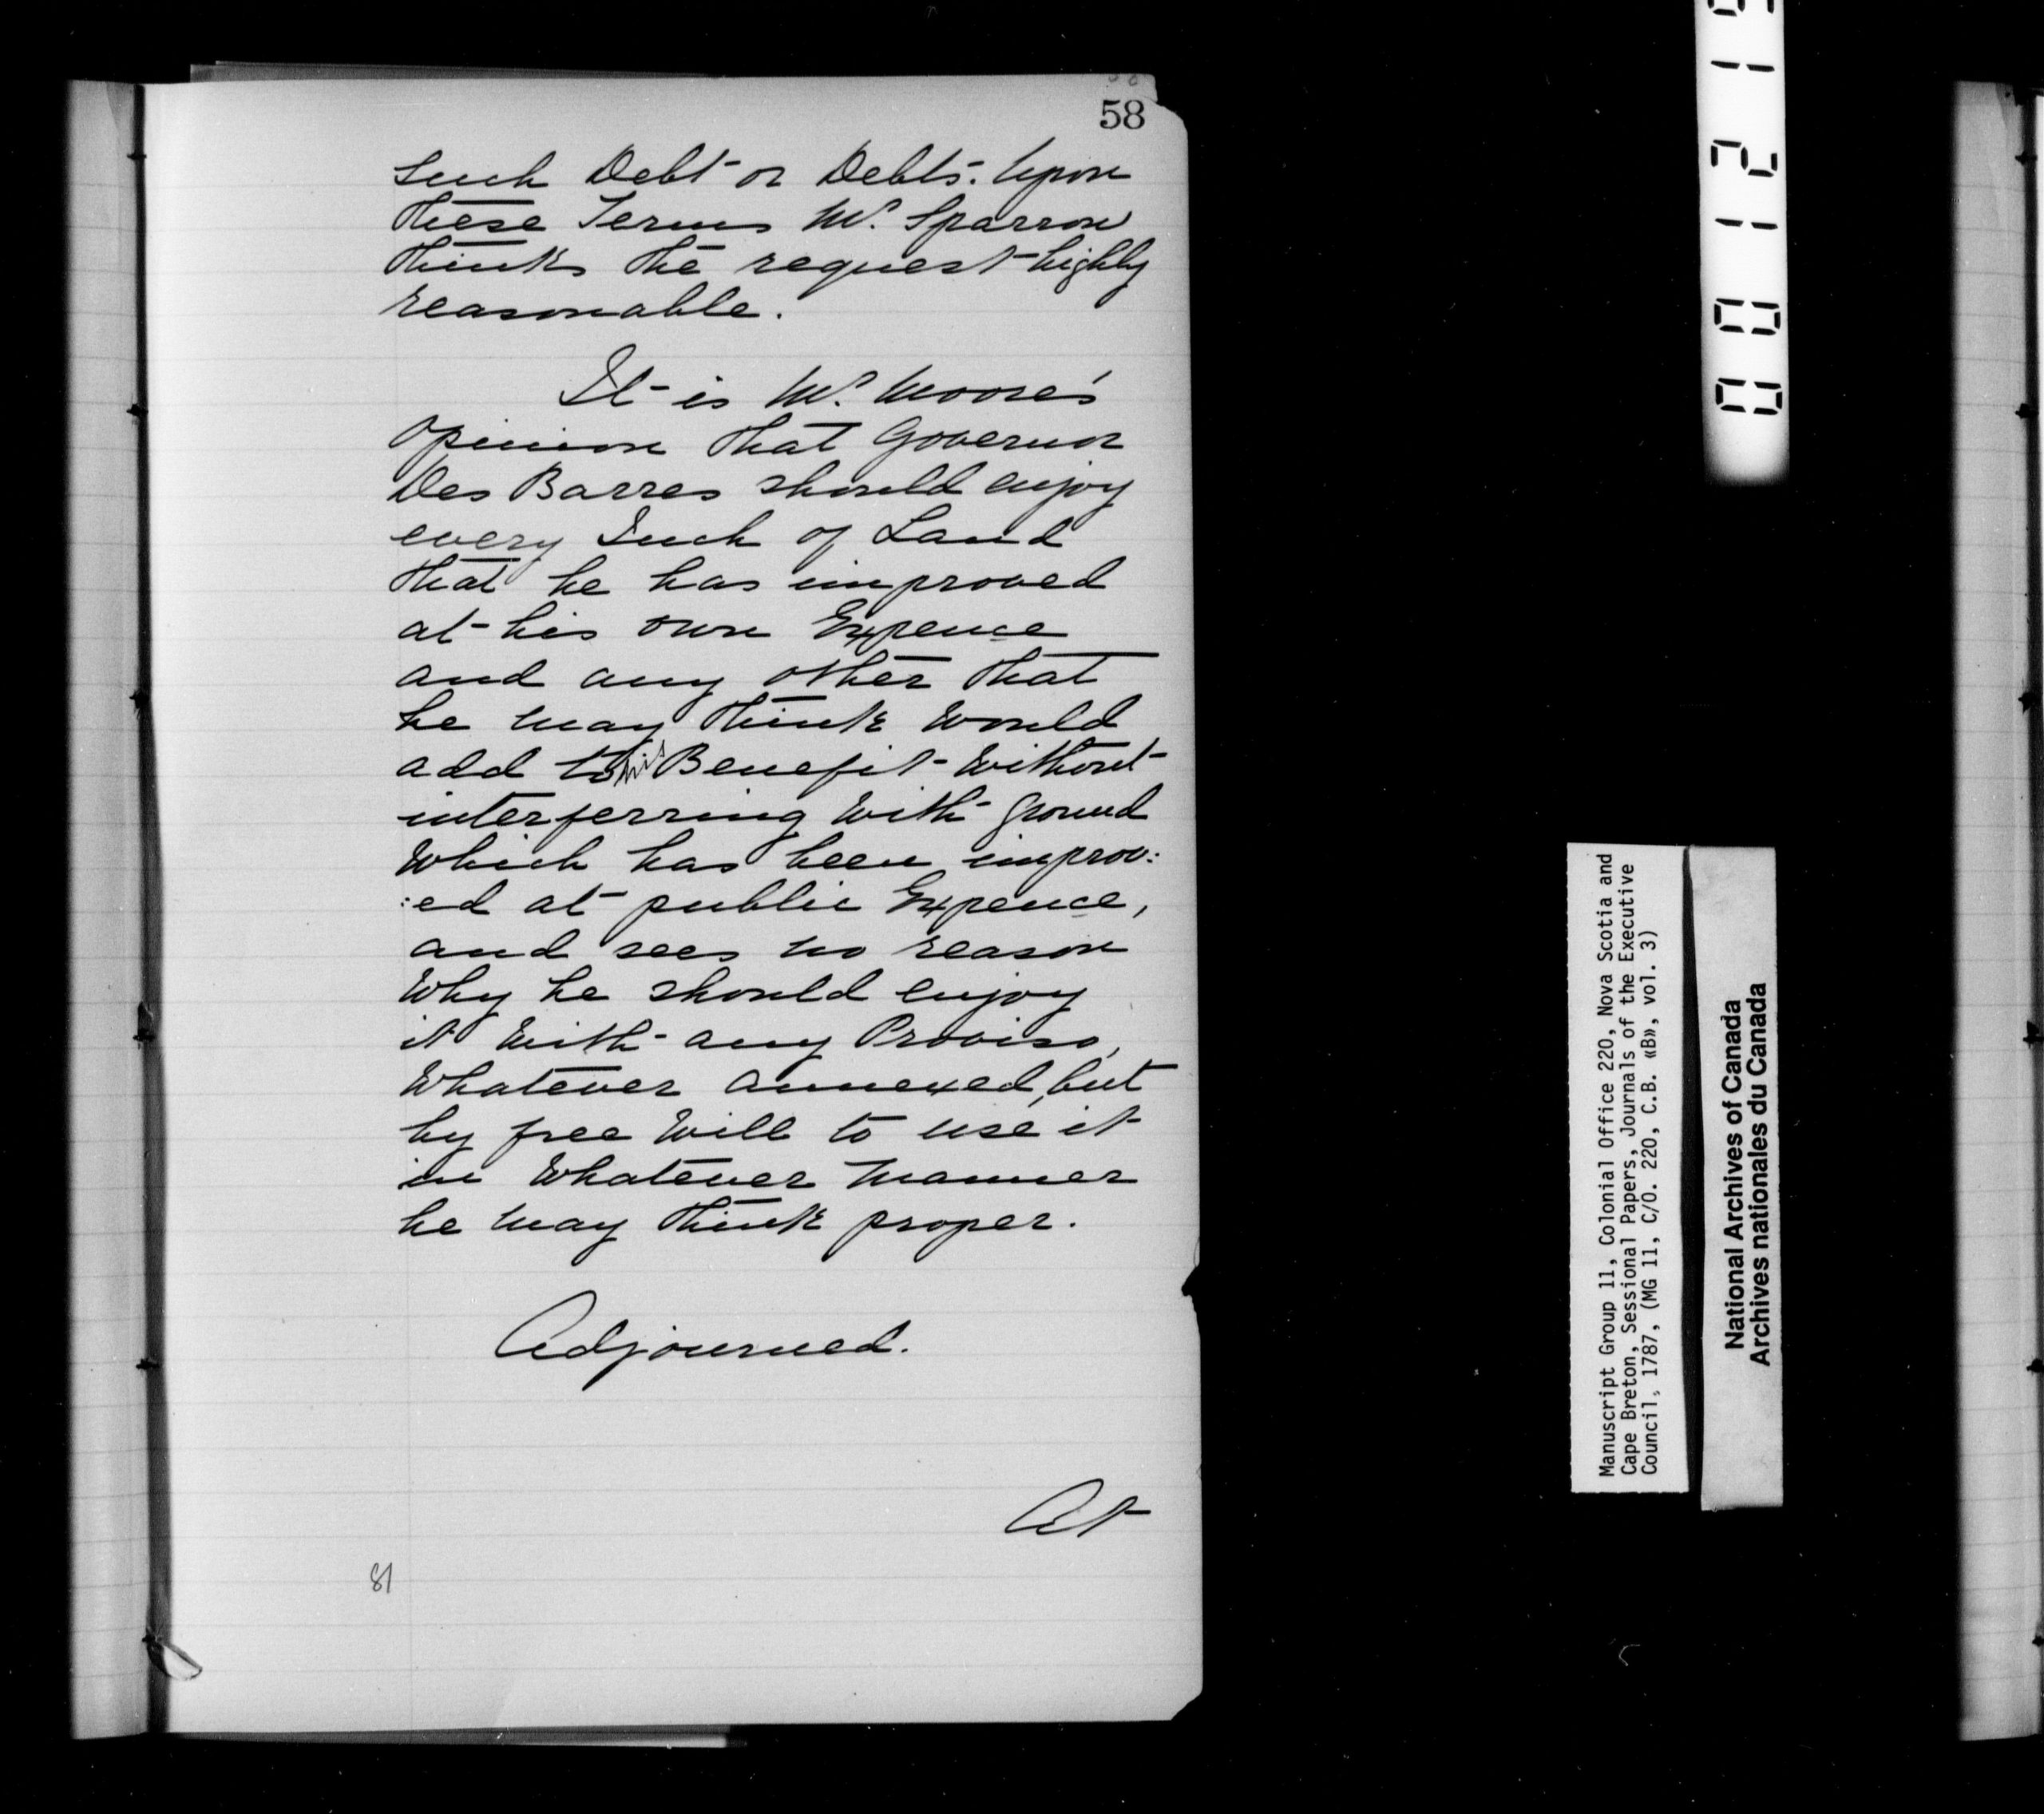 58
Such Debt or Debts. Upon
these Terms Mr. Sparrow
thinks the request highly
reasonable.
It is Mr. Moore's
opinion that Governor
Des Barres should enjoy
every Inch of Land
that he has improved
at his own Expence
and any other that
he may think Would
add to his Benefit Without
interferring With ground
Which has been improv:
:ed at public Expence,
and sees no reason
Why he should enjoy
it With any Proviso,
Whatever annexed, but
by free Will to use it
in Whatever Manner
he may think proper.
Adjourned.
At
81
Manuscript Group 11, Colonial Office 220, Nova Scotia and
Cape Breton, Sessional Papers, Journals of the Executive
Council, 1787, (MG 11, C/O. 220, C.B. «B», vol. 3)
National Archives of Canada
Archives nationales du Canada
00121